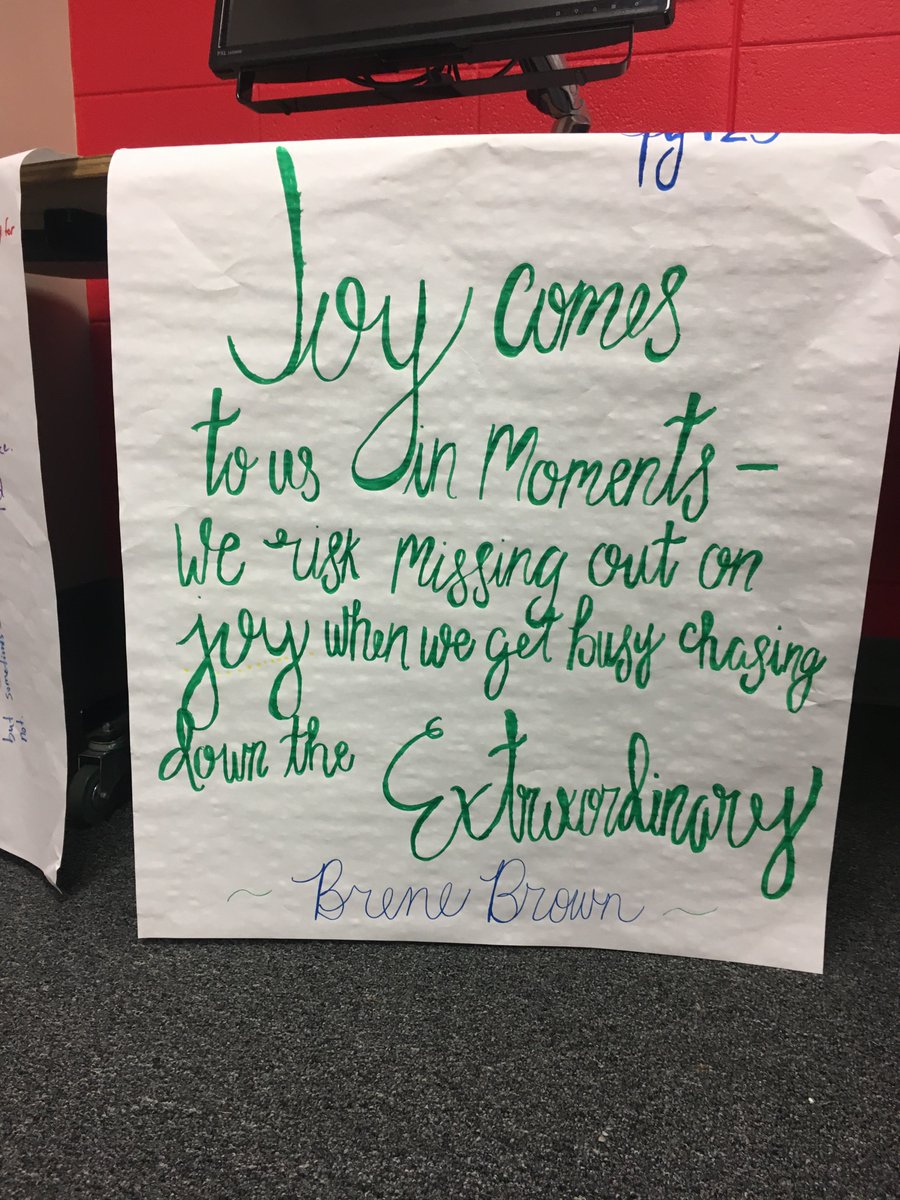 pg 125
Joy comes
to us in Moments –
We risk missing out on
joy when we get busy chasing
down the Extraordinary
~ Brene Brown ~
for
but sometimes
not.